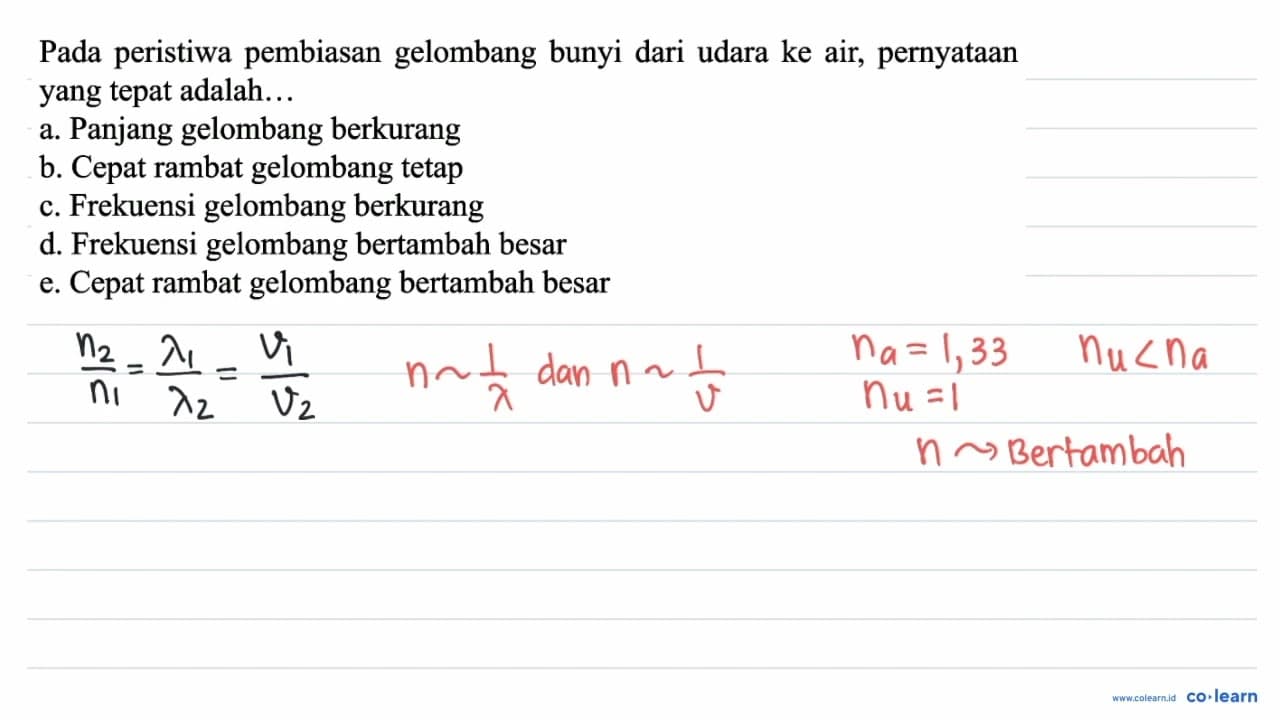 Pada peristiwa pembiasan gelombang bunyi dari udara ke air, pernyataan
yang tepat adalah...
a. Panjang gelombang berkurang
b. Cepat rambat gelombang tetap
c. Frekuensi gelombang berkurang
d. Frekuensi gelombang bertambah besar
e. Cepat rambat gelombang bertambah besar
n₂/n₁ = λ₁/λ₂ = v₁/v₂ n ~ 1/λ dan n ~ 1/v na = 1,33 nu < na
nu = 1
n ⤳ Bertambah
www.colearn.id co·learn